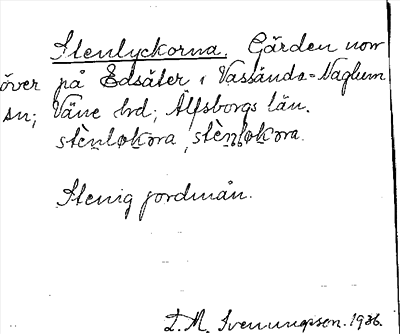 Stenlyckorna. Gärden norr
över på Edsäter i Vassända-Naglum
sn; Väne hrd; Älfsborgs län.
stènlokora, stènlokora.
Stenig jordmån.
D. M. Svenungsson. 1936.